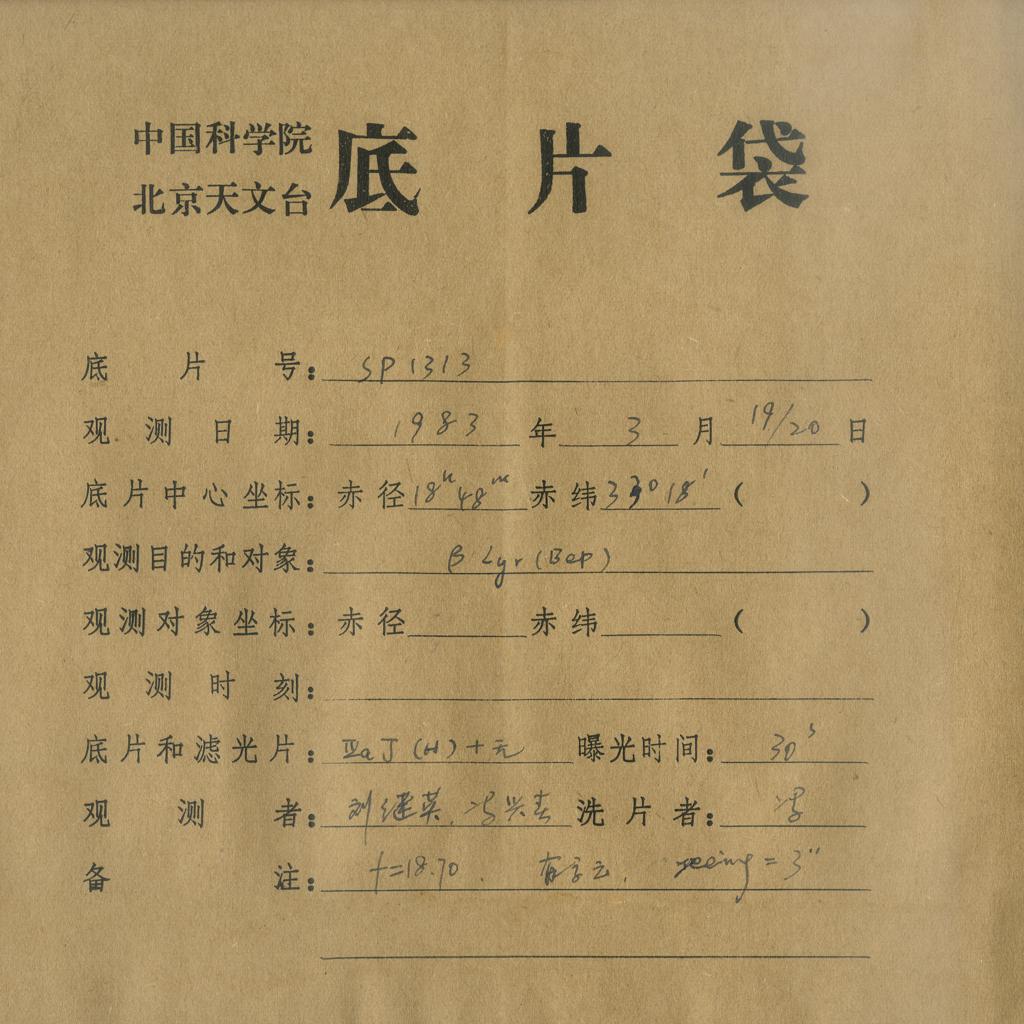 中国科学院
北京天文台
底片袋
底片号：SP1313
观测日期：1983年3月19/20日
底片中心坐标：赤径18h48m赤纬33°18′（ ）
观测目的和对象：β Lyr (Bep)
观测对象坐标：赤径 赤纬 （ ）
观测时刻：
底片和滤光片：ⅢaJ(H)+无 曝光时间：30s
观测者：刘继英. 冯兴春 洗片者：冯
备注：f=18.70. 有云. seeing=3″